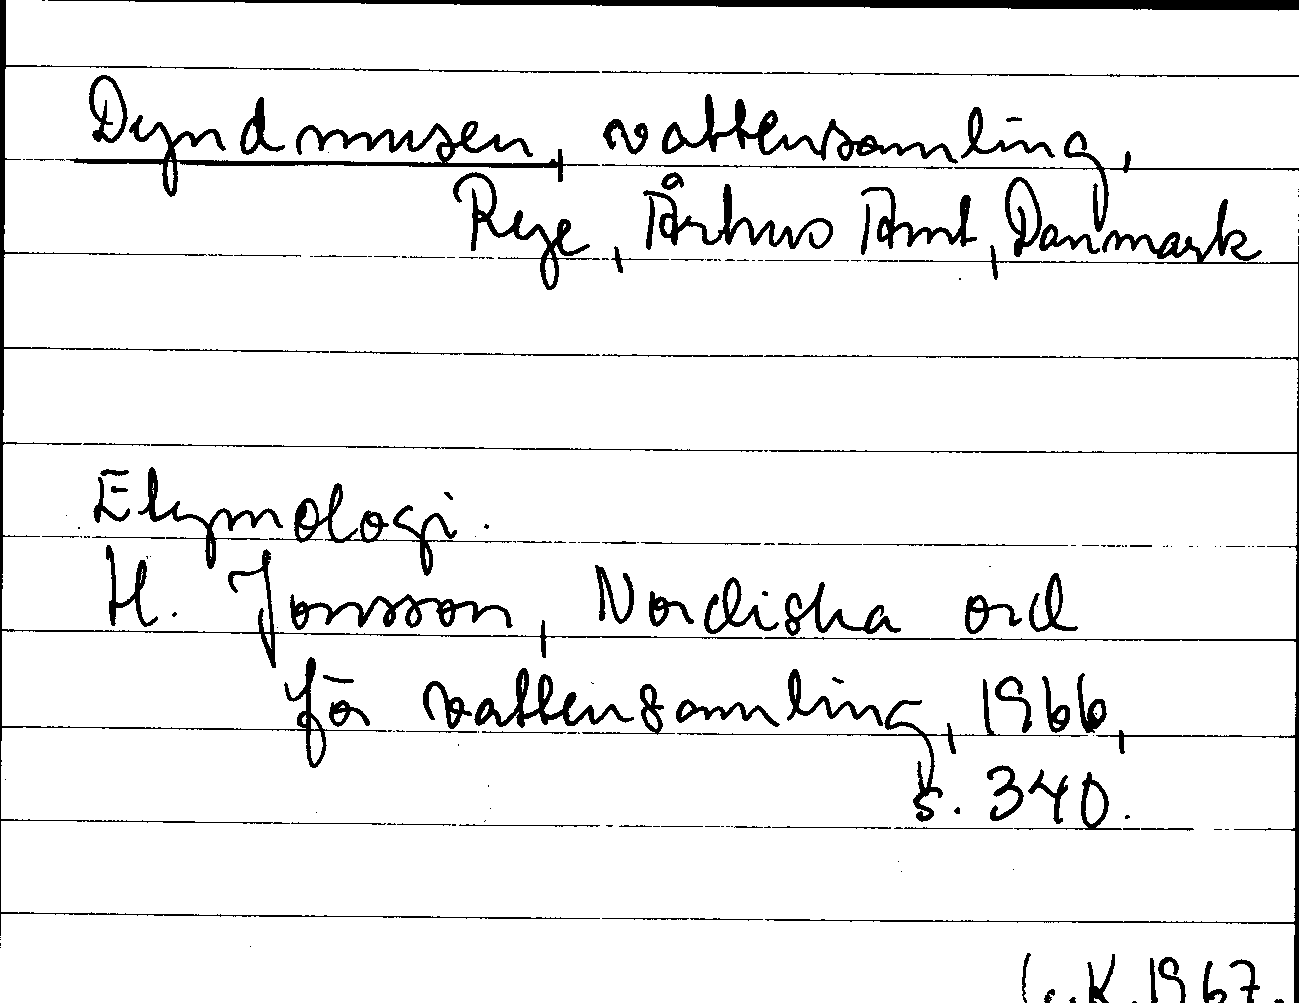 Dyndmusen, vattensamling,
Rye, Århus Amt, Danmark
Etymologi.
H. Jonsson, Nordiska ord
för vattensamling, 1966,
s. 340.
K. 1967.